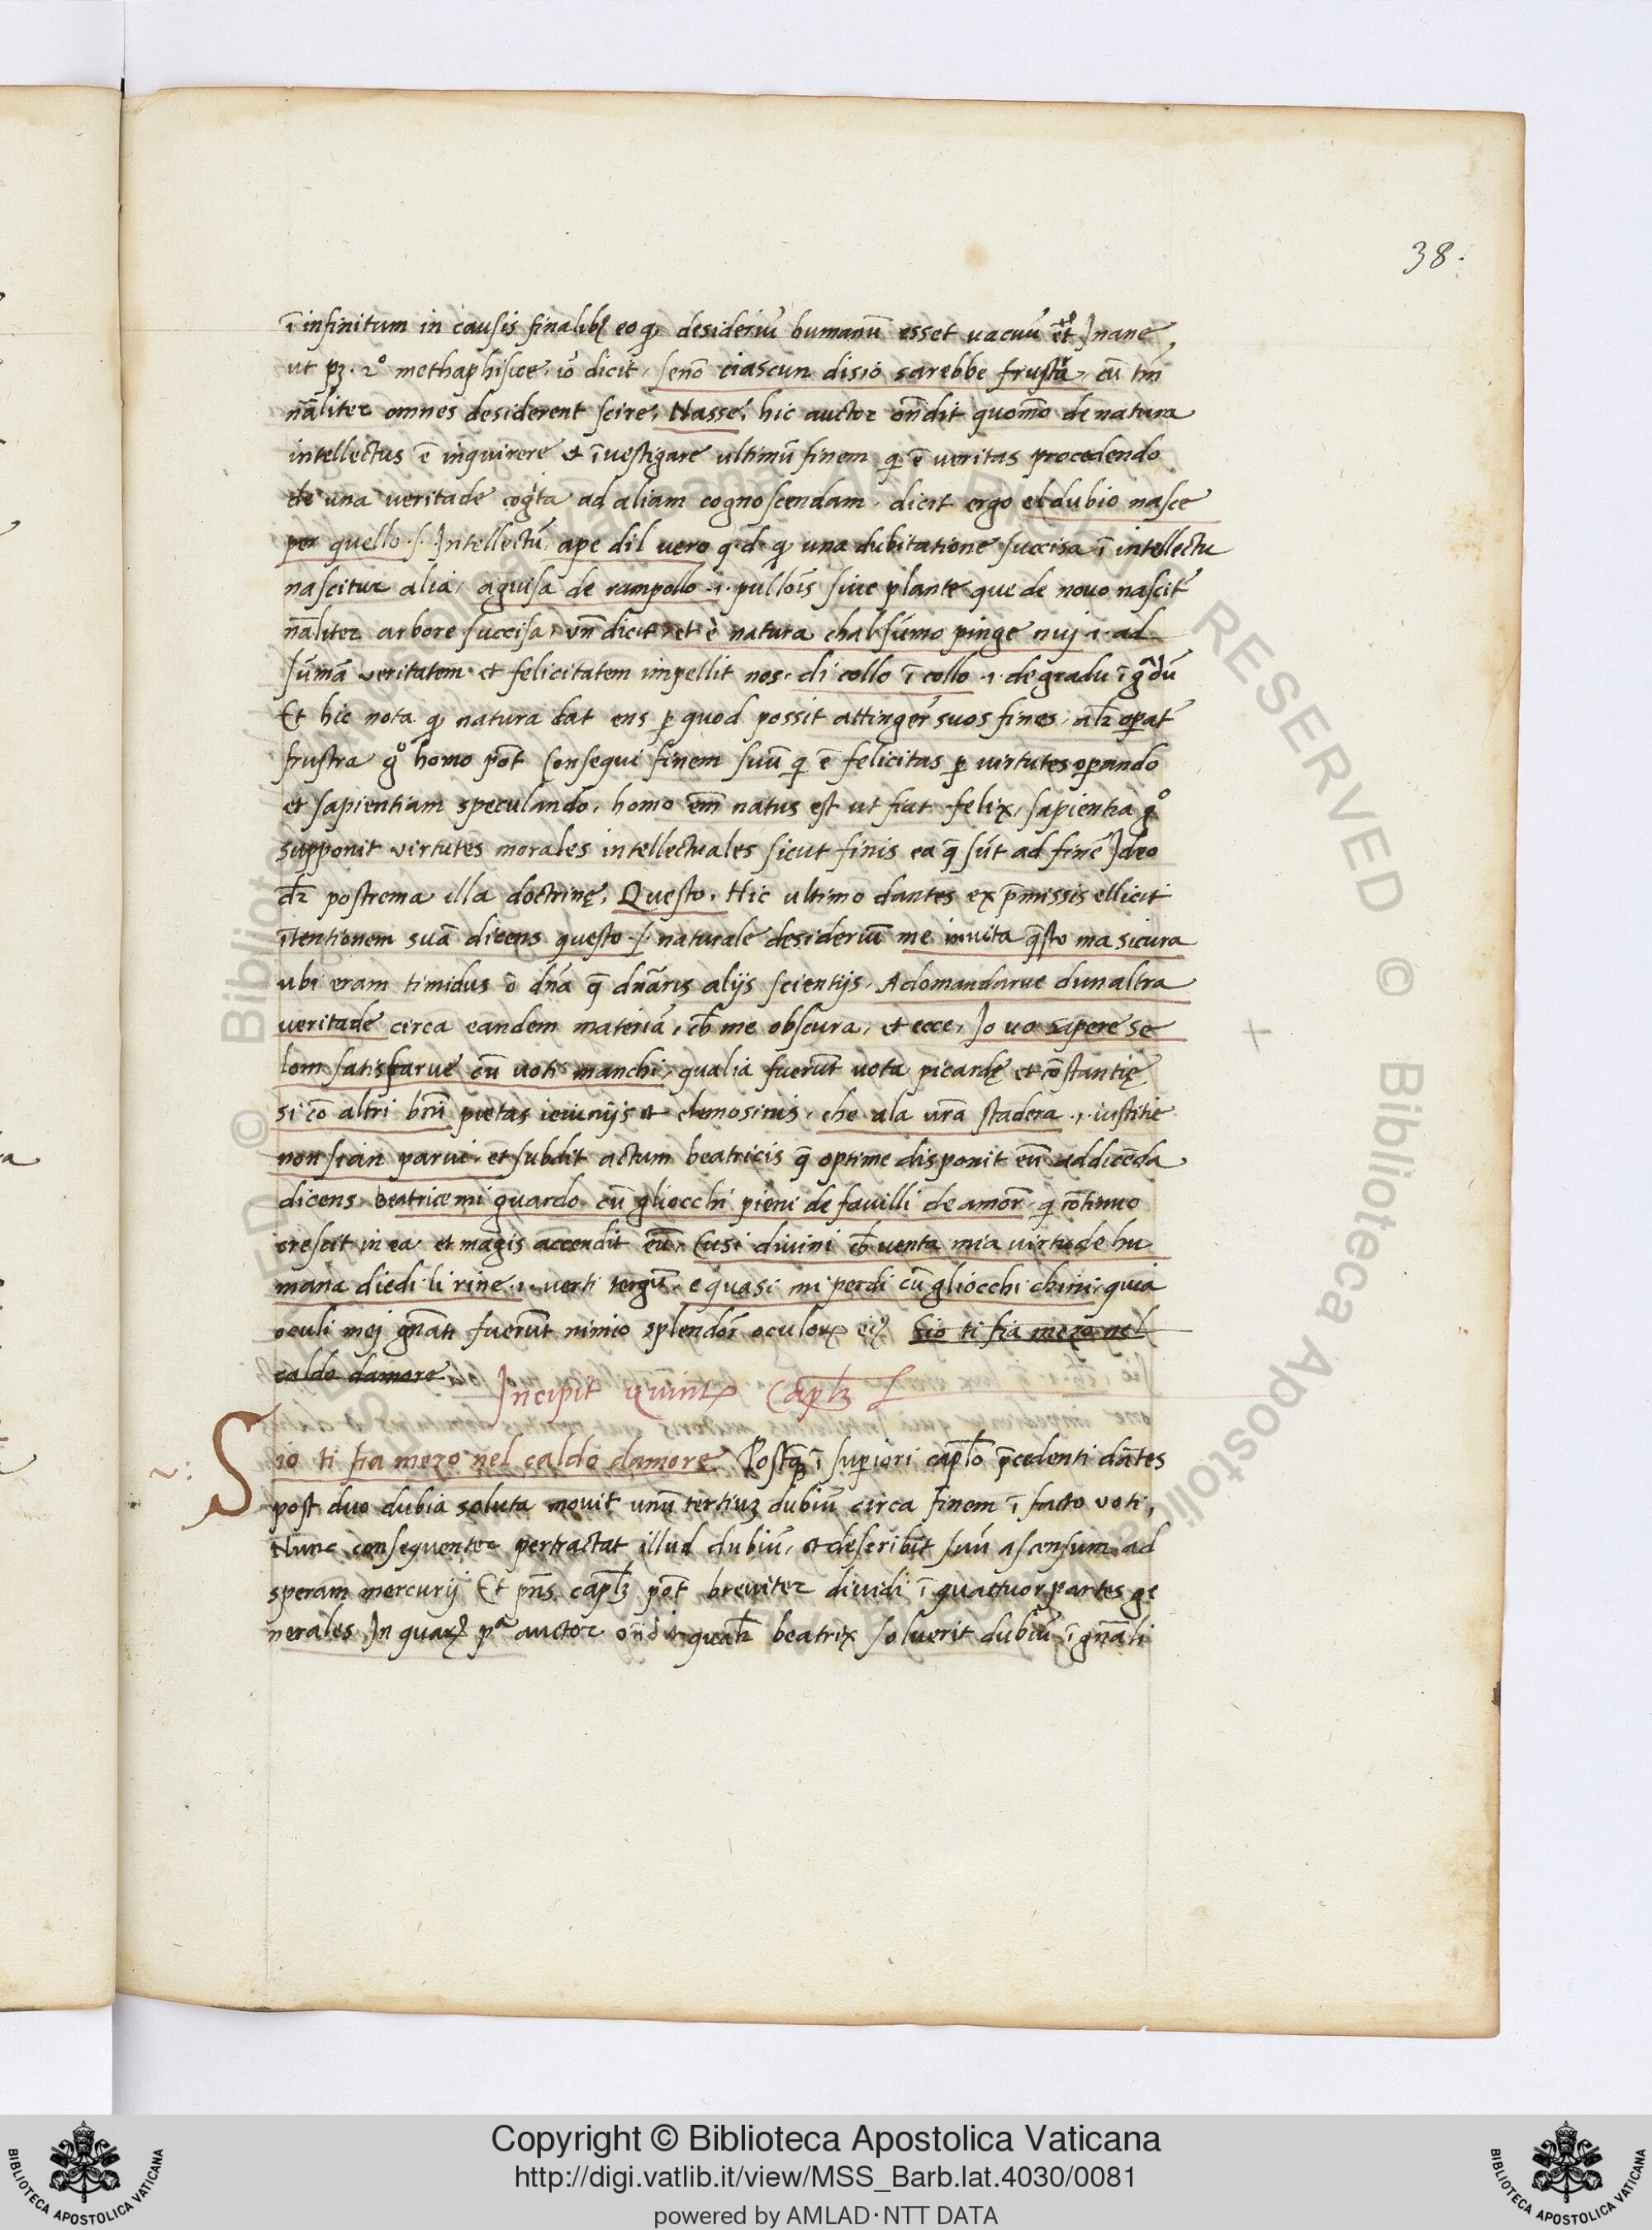 38.
ī infinitum in causis finalibꝰ eo ꝙ desideriū humanū esset vacuū et Inane
ut pꝫ. 2° methaphisice. iō dicit, senō ciascun disio sarebbe frustra, cū tn̄
nāliter omnes desiderent scire, Nasse, hic auctor on̄dit quomō de natura
intellectus ē inquirere et īvestigare ultimū finem q̄ ē veritas procedendo
de una veritade coḡta ad aliam cognoscendam. dicit ergo el dubio nasce
per quello .s. Intellectū, ape dil vero q.d. ꝙ una dubitatione succisa ī intellectu
nascitur alia, aguisa de rampollo .i. pullōis sive plante que de novo nascit̄
nāliter arbore succisa, vn̄ dicit, et è natura chal sūmo pinge nuj .i. ad
sūmā veritatem et felicitatem impellit nos. di collo ī collo .i. de gradu ī gradū
Et hic nota ꝙ natura dat ens ꝑ quod possit attinger̄ suos fines, al̄r oꝑat̄
frustra g° homo pōt Consequi finem suū q̄ ē felicitas ꝑ virtutes oꝑando
et sapientiam speculando, homo em̄ natus est ut fiat felix, sapientia g°
supponit virtutes morales intellectuales sicut finis ea q̄ sūt ad finē Ideo
dr̄ postrema illa doctrinę, Questo, Hic ultimo dantes ex p̄missis ellicit
ītentionem suā dicens questo .s. naturale desideriū me invita q̄sto ma sicura
ubi eram timidus ō dn̄a q̄ dn̄aris alijs scientijs, Adomandarve dunaltra
veritade circa eandem materiā, cħ me obscura, et ecce, Io vo sapere se
lom satisfarve cū voti manchi, qualia fuerūt vota picardę et cōstantię
si cō altri bn̄i pietas ieiunijs et elemosinis, che ala vr̄a stadera .i. iustitie
non sian parvi, et subdit actum beatricis q̄ optime disponit eū ad dicēda
dicens, beatrice mi guardo cū gliocchi pieni de favilli de amor̄ q̄ cōtinuo
crescit in ea et magis accendit eū, Cusi divini cħ venta mia virtude hu
mana diedi li rine .i. verti tergū, e quasi mi perdi cū gliocchi chini, quia
oculi mej gn̄ati fuerūt nimio splendor̄ oculoꝝ eiꝰ Sio ti fia mezo nel
caldo damore
Incipit quintꝰ Capl̄ꝫ
Sio ti fia mezo nel caldo damore Postq̄ꝫ ī superiori capl̄o p̄cedenti dātes
post duo dubia soluta movit unū tertiuꝫ dubiū circa finem ī facto voti,
Nunc consequenter pertractat illud dubiū, et describit suū ascensum ad
speram mercurij Et pn̄s capl̄ꝫ pōt breviter dividi ī quattuor partes ge
nerales, In quaꝝ pª auctor on̄dit qual̄r beatrix solverit dubiū ī gn̄ali
Copyright © Biblioteca Apostolica Vaticana
http://digi.vatlib.it/view/MSS_Barb.lat.4030/0081
powered by AMLAD·NTT DATA